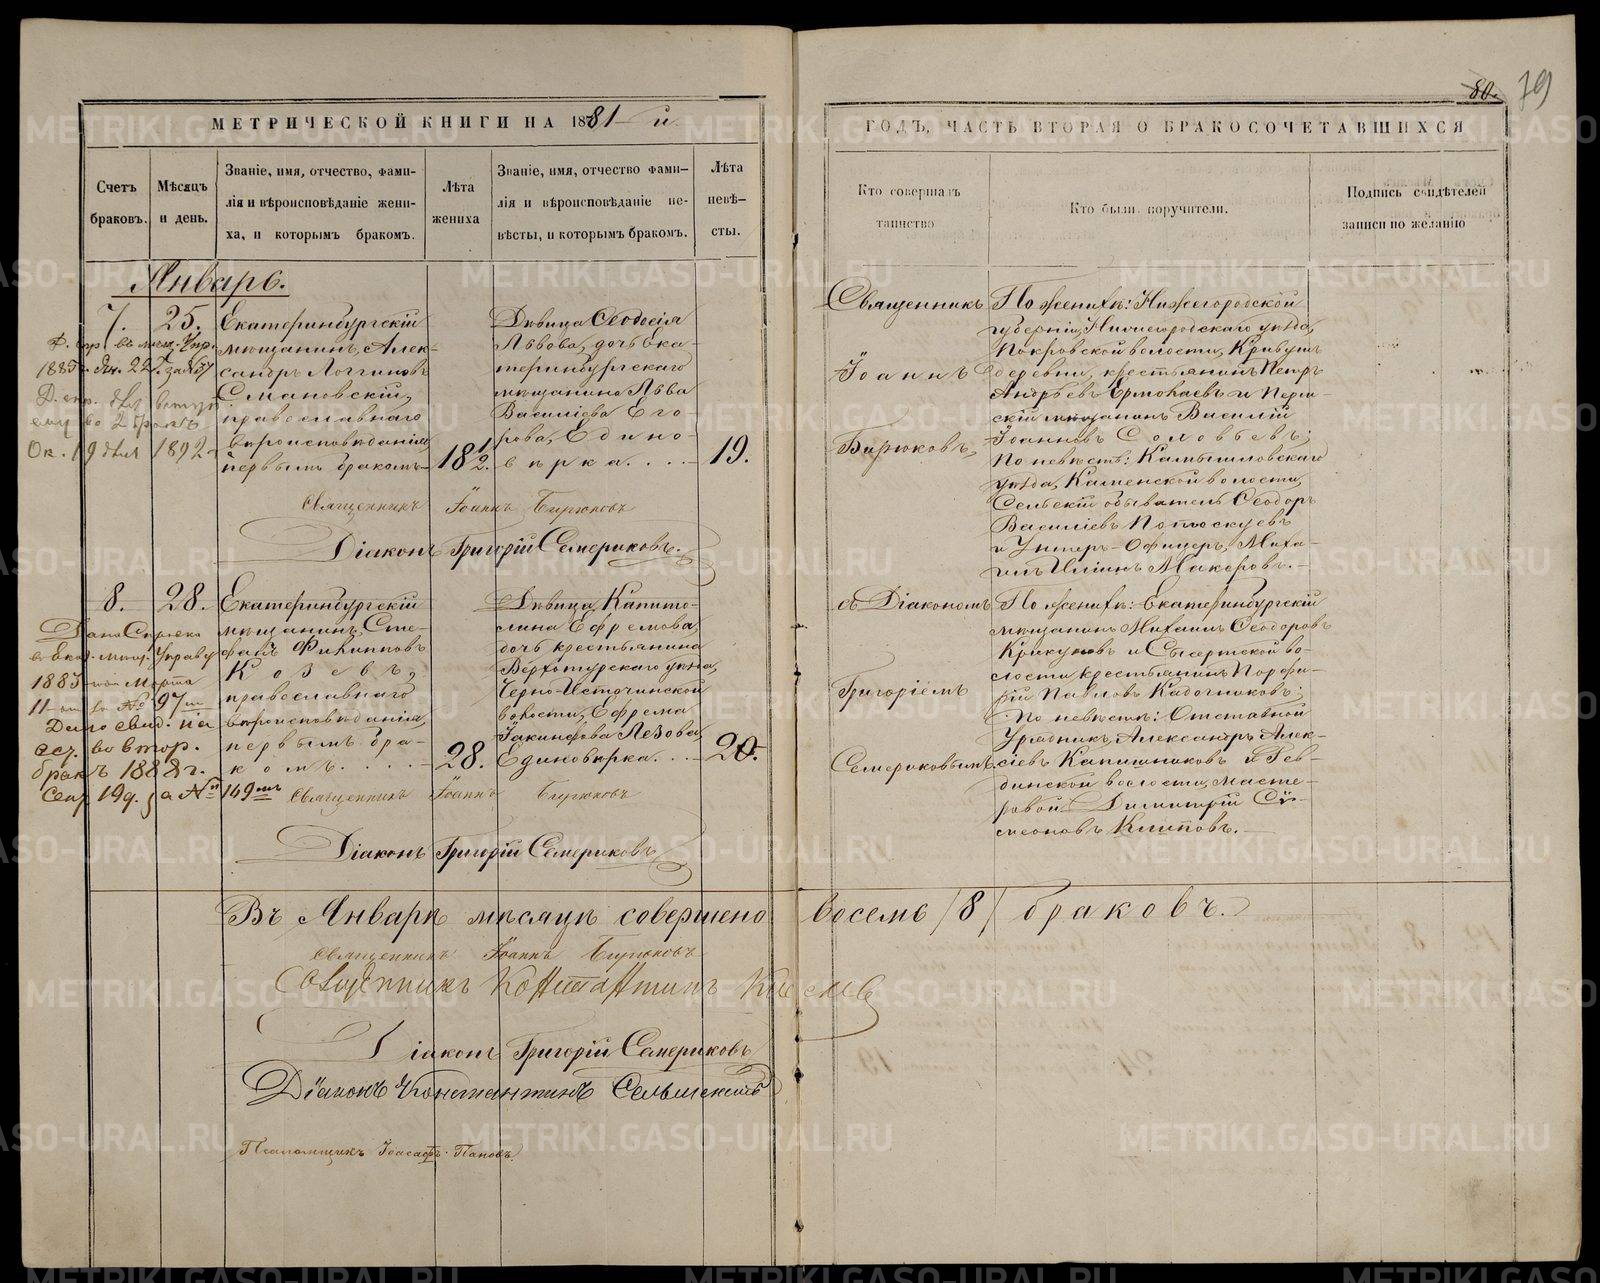 80. 79
МЕТРИЧЕСКОЙ КНИГИ НА 1881 й
ГОДЪ, ЧАСТЬ ВТОРАЯ О БРАКОСОЧЕТАВШИХСЯ
Счетъ браковъ.
Мѣсяцъ и день.
Званіе, имя, отчество, фами-
лія и вѣроисповѣданіе жени-
ха, и которымъ бракомъ.
Лѣта жениха
Званіе, имя, отчество фами-
лія и вѣроисповѣданіе не-
вѣсты, и которымъ бракомъ.
Лѣта невѣ-
сты.
Кто совершалъ
таинство
Кто были поручители.
Подпись свидѣтелей
записи по желанію
Январь.
7. 25.
Екатеринбургскій
мѣщанинъ, Алек-
сандръ Логгиновъ
православнаго
вѣроисповѣданія,
первымъ бракомъ
18 1/2.
Дѣвица Ѳеодосія
Львова, дочь Ека-
теринбургскаго
мѣщанина Льва
Василіева Его-
рова, Едино-
вѣрка....
19.
Священникъ
Іоаннъ
Бирюковъ,
По женихѣ: Нижегородской
губерніи, Нижегородскаго уѣзда,
Покровской волости,
деревни, крестьянинъ Петръ
Андреевъ Ермолаевъ и Перм-
скій мѣщанинъ Василій
Іоанновъ Соловьевъ;
По невѣстѣ: Камышловскаго
уѣзда, Каменской волости,
Сельскій обыватель Ѳеодоръ
Василіевъ
и Унтеръ-Офицеръ, Миха-
илъ Иліинъ Макаровъ.
Священникъ Іоаннъ Бирюковъ
Діаконъ Григорій Семериковъ.
8. 28.
Екатеринбургскій
мѣщанинъ, Сте-
фанъ Филипповъ
Козевъ,
православнаго
вѣроисповѣданія,
первымъ бра-
комъ....
28.
Дѣвица, Капито-
лина Ефремова,
дочь крестьянина
Верхотурскаго уѣзда,
Черно-Источинской
волости, Ефрема
Іакинфова Лезова,
Единовѣрка...
20.
съ Діакономъ
Григоріемъ
Семериковымъ
По женихѣ: Екатеринбургскій
мѣщанинъ Михаилъ Ѳеодоровъ
Крикуновъ и Сысертской во-
лости, крестьянинъ Порфи-
рій Павловъ Кадочниковъ;
По невѣстѣ: Отставной
Урядникъ, Александръ Алек-
сіевъ Капишниковъ и Рев-
динской волости, масте-
ровой Димитрій Сѵ-
меоновъ Климовъ.
Дана Справка
11 за № 97
бракъ 1888 г.
Сен. 19 д. за № 149
Священникъ Іоаннъ Бирюковъ
Діаконъ Григорій Семериковъ
Въ Январѣ мѣсяцѣ совершено восемь /8/ браковъ.
Священникъ Іоаннъ Бирюковъ
Священникъ Константинъ
Діаконъ Григорій Семериковъ
Діаконъ Константинъ
Псаломщикъ Іоасафъ Пановъ.
METRIKI.GASO-URAL.RU